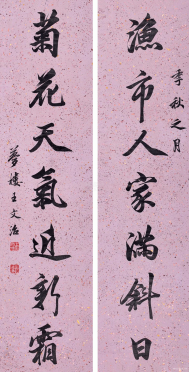 漁市人家滿斜日
季秋之月
菊花天氣近新霜
夢樓王文治